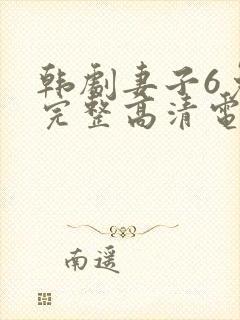 韩劇妻子6
完整高清電
南遥